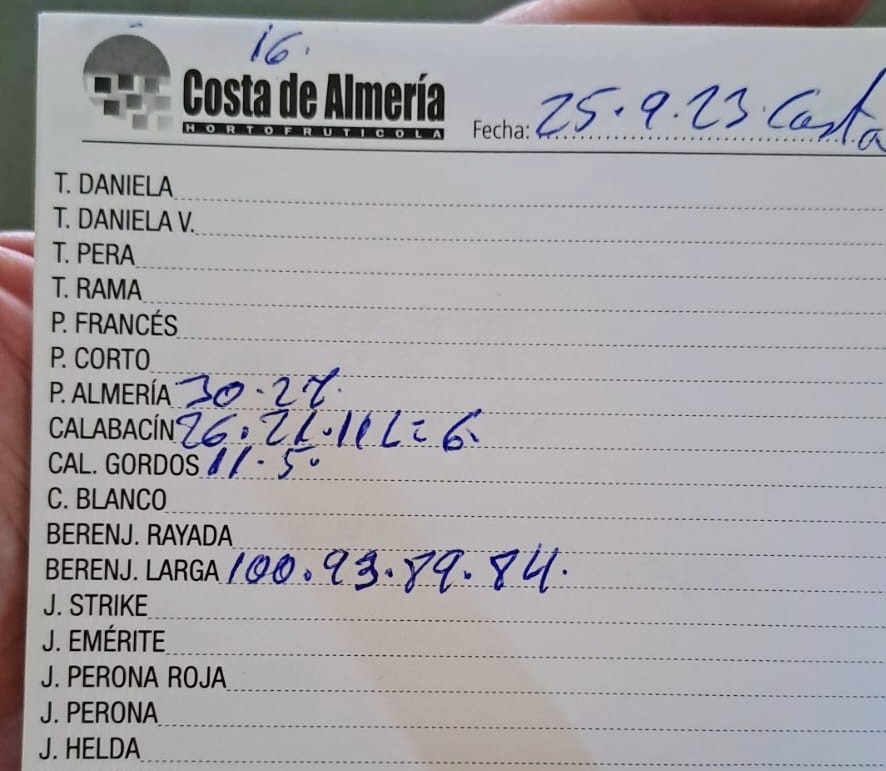 16.
Costa de Almería
HORTOFRUTICOLA
Fecha: 25.9.23. Costa
T. DANIELA
T. DANIELA V.
T. PERA
T. RAMA
P. FRANCÉS
P. CORTO
P. ALMERÍA 30.27.
CALABACÍN 26.21.11
CAL. GORDOS 11.5.
C. BLANCO
BERENJ. RAYADA
BERENJ. LARGA 100.93.89.84.
J. STRIKE
J. EMÉRITE
J. PERONA ROJA
J. PERONA
J. HELDA